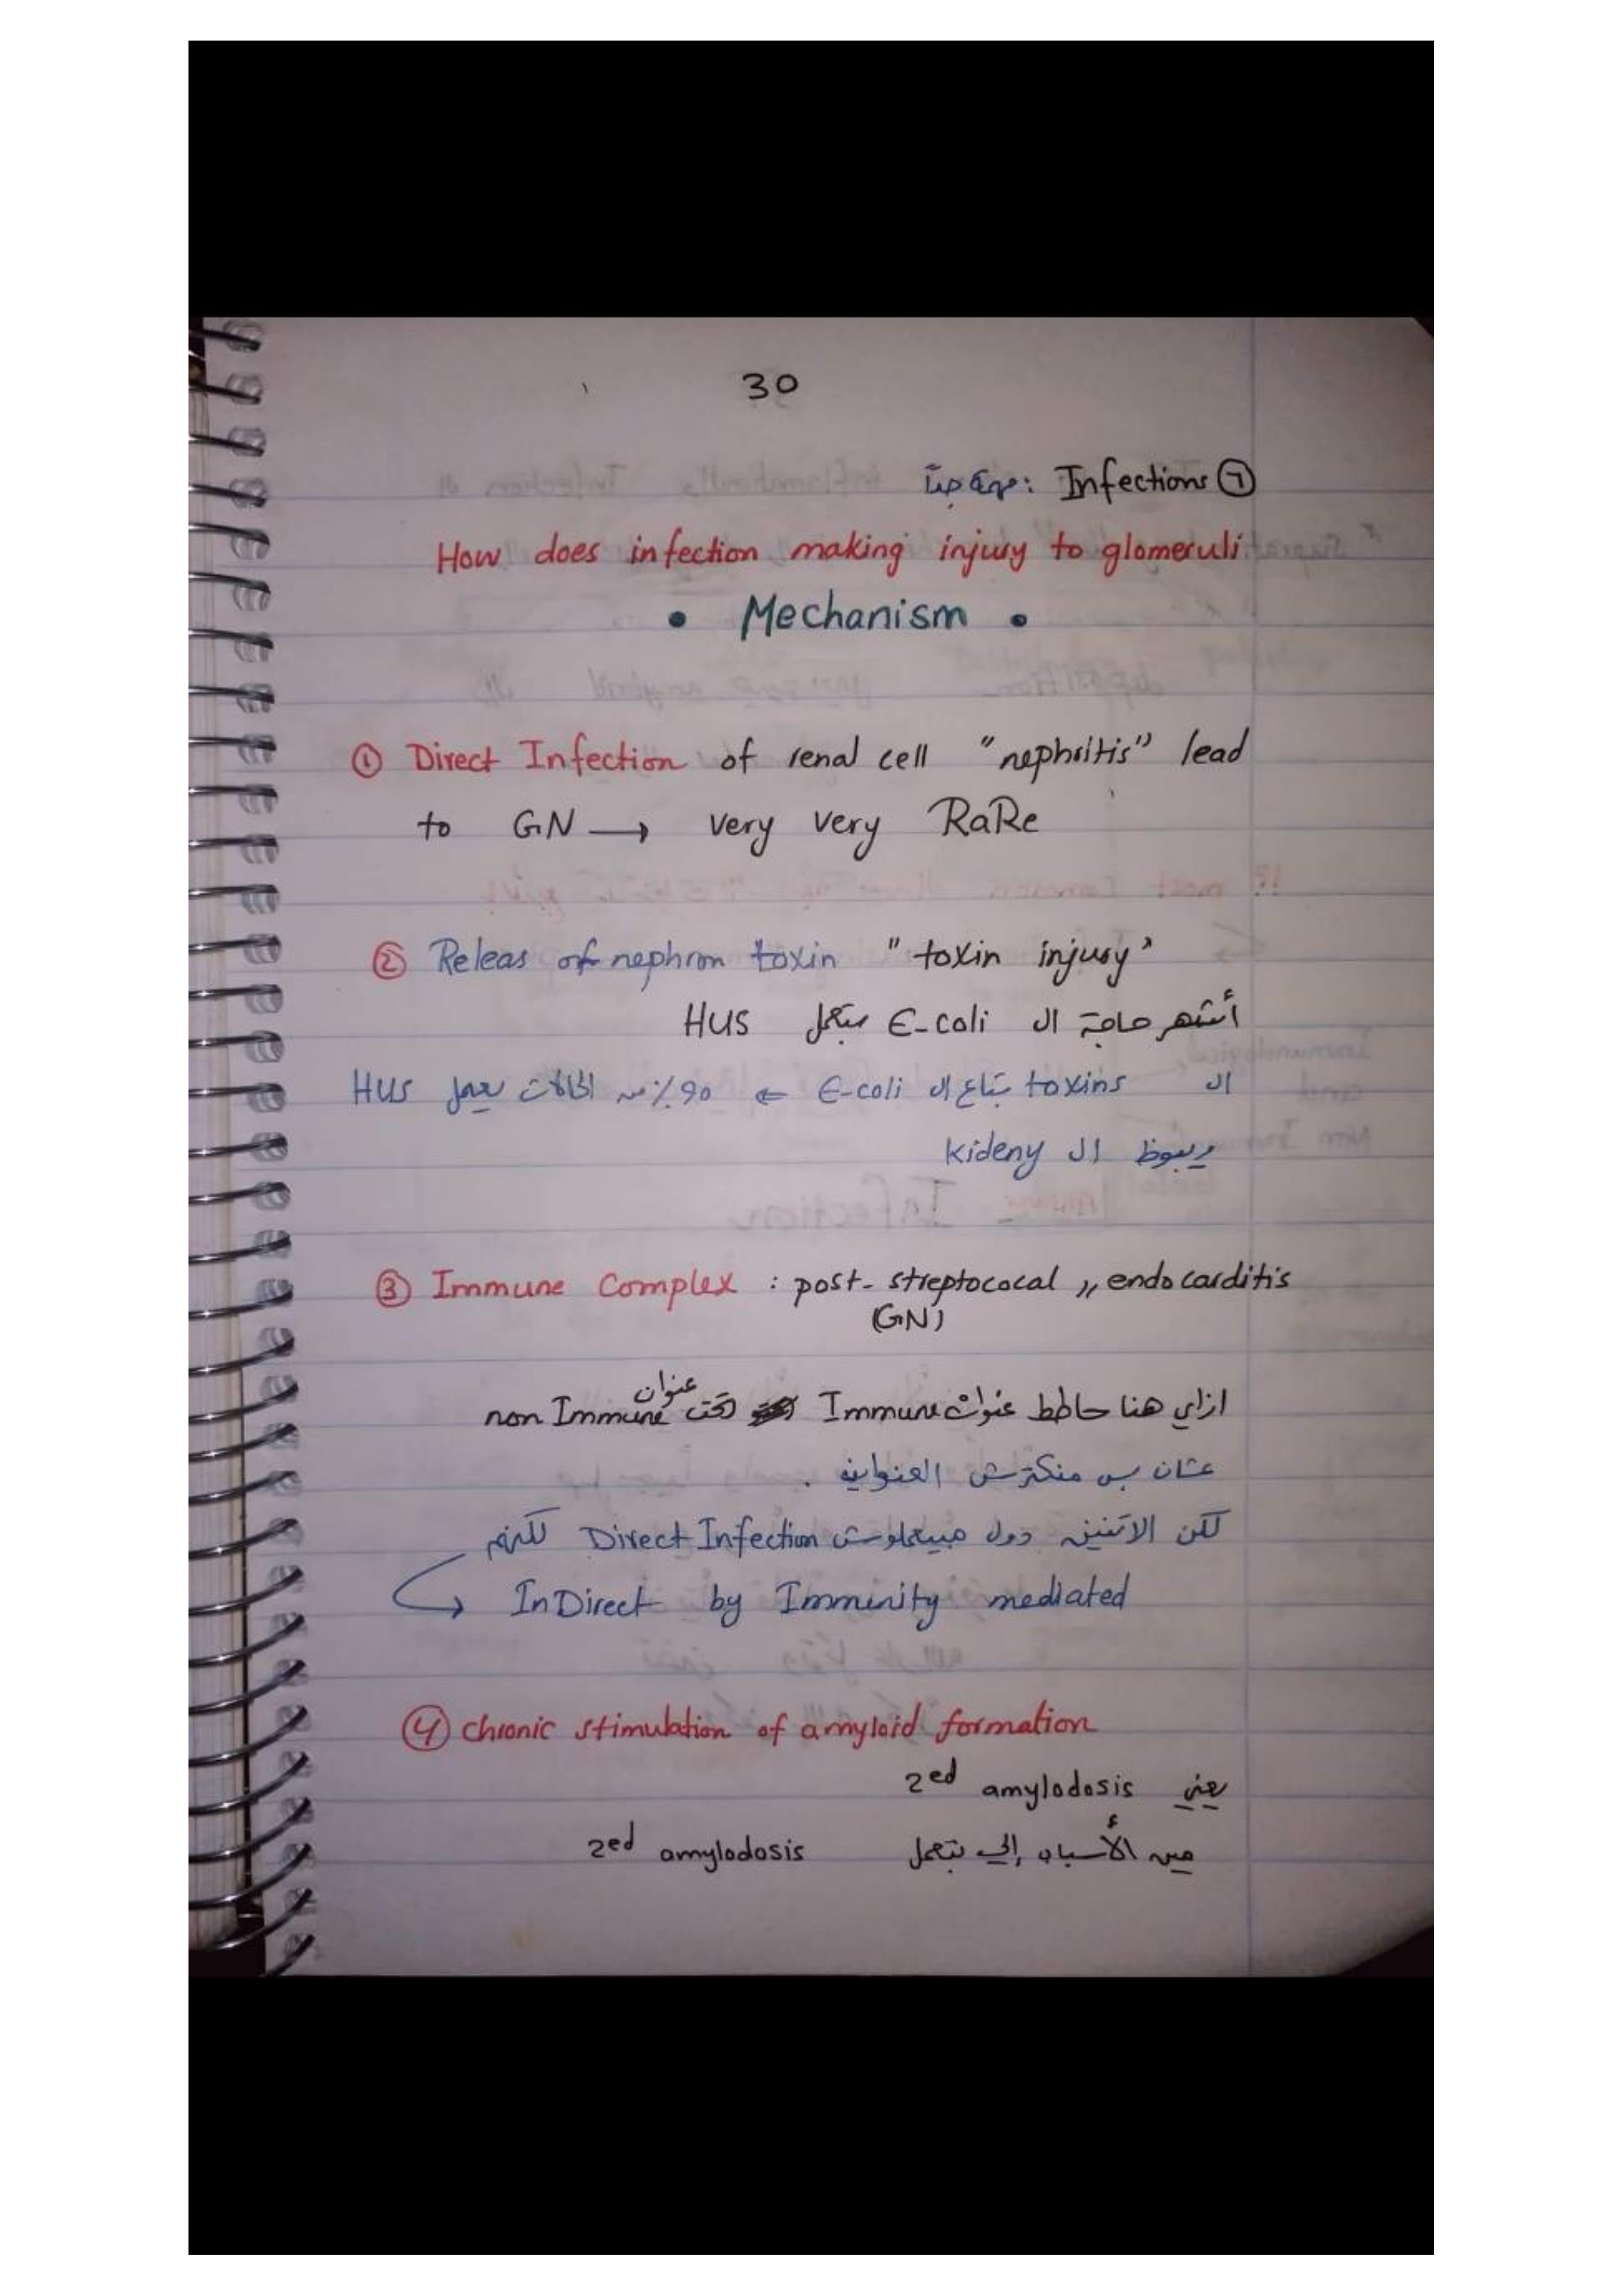 30
⑦ Infections : مهمة جداً
How does infection making injury to glomeruli
• Mechanism •
① Direct Infection of renal cell "nephritis" lead
to GN → very very RaRe
② Releas of nephron toxin "toxin injury"
أشهر حاجة ال E-coli بتعمل HUS
ال toxins بتاع ال E-coli ⇐ 90٪ من الحالات يعمل HUS
ويبوظ ال Kideny
③ Immune Complex : post-streptococal ,, endocarditis
(GN)
ازاي هنا حاطط عنوان Immune تحت عنوان non Immune
عشان بس منكترش العناوين .
لكن الاتنين دول مبيعملوش Direct Infection لكنهم
↳ InDirect by Imminity mediated
④ chronic stimulation of amyloid formation
يعني 2ed amylodosis
مين الأسباب إلي بتعمل 2ed amylodosis